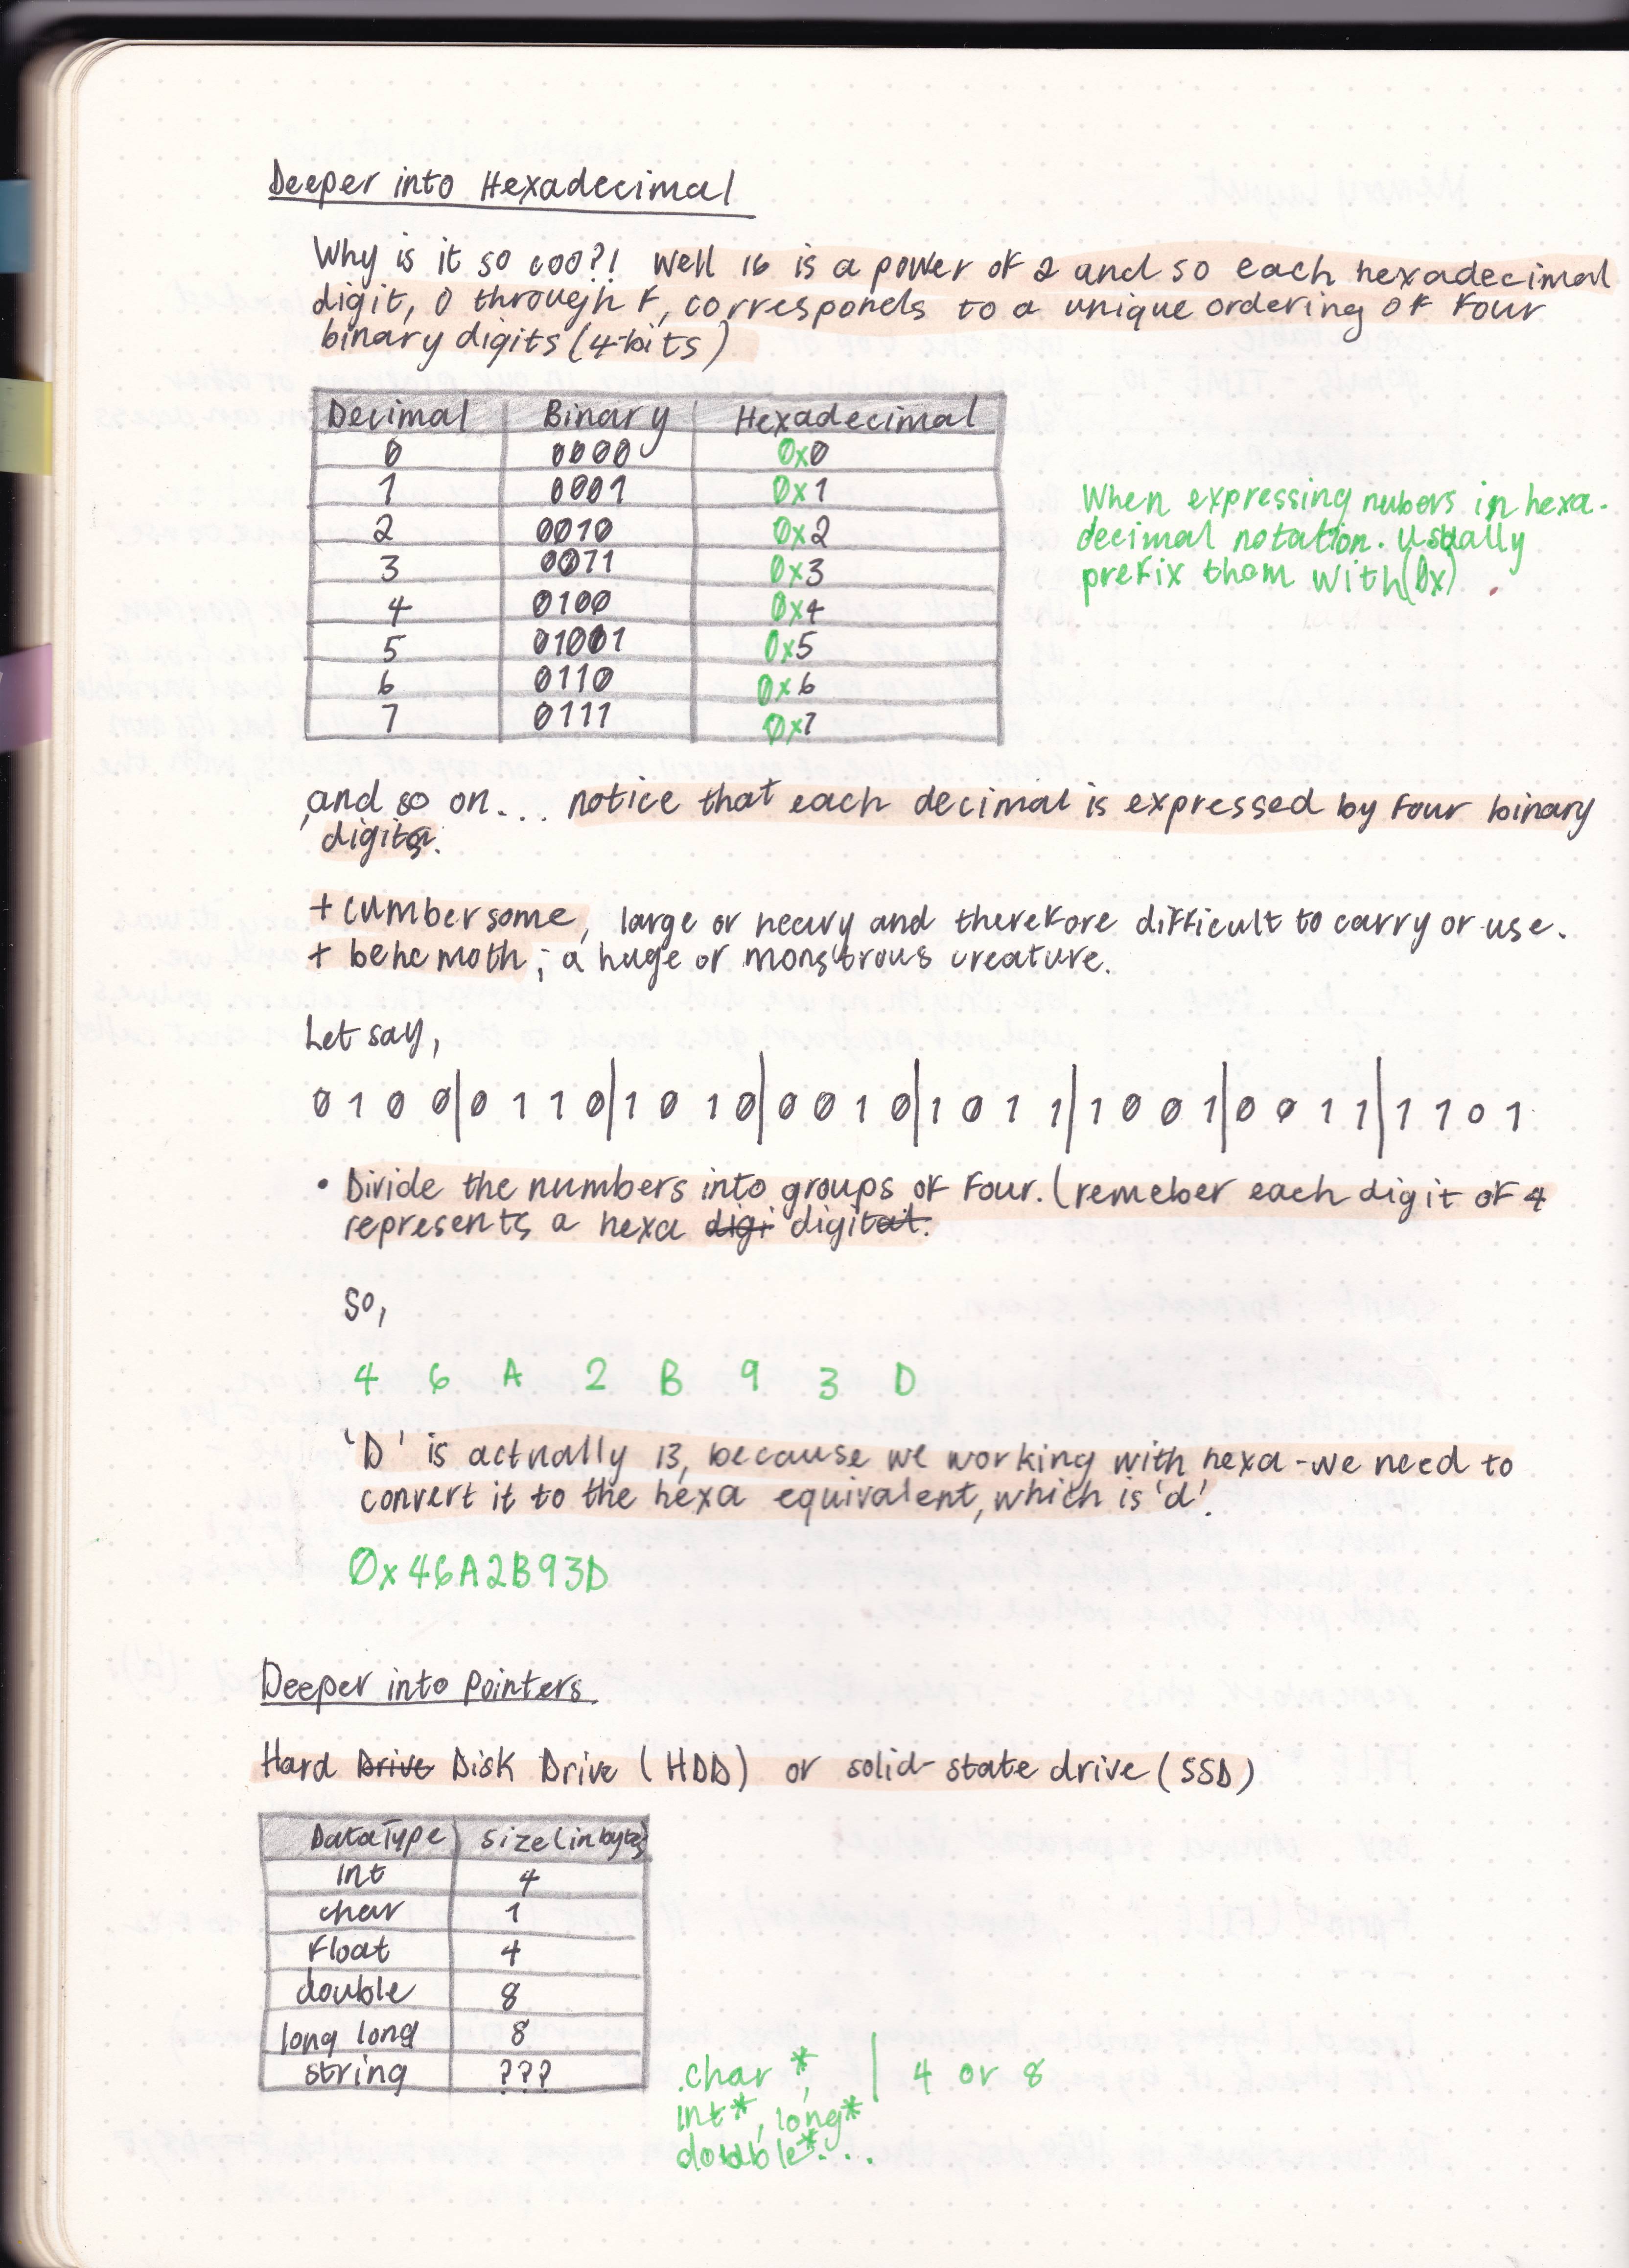 Deeper into Hexadecimal
Why is it so coo?! Well 16 is a power of 2 and so each hexadecimal
digit, 0 through F, corresponds to a unique ordering of four
binary digits (4-bits)
Decimal Binary Hexadecimal
0 0000 0x0
1 0001 0x1
2 0010 0x2
3 0011 0x3
4 0100 0x4
5 01001 0x5
6 0110 0x6
7 0111 0x7
When expressing nubers in hexa-
decimal notation. Usually
prefix them with (0x)
,and so on... notice that each decimal is expressed by four binary
digits.
+ cumbersome, large or heavy and therefore difficult to carry or use.
+ behemoth; a huge or monstrous creature.
Let say,
0 1 0 0|0 1 1 0|1 0 1 0|0 0 1 0|1 0 1 1|1 0 0 1|0 0 1 1|1 1 0 1
• Divide the numbers into groups of four. (remeber each digit of 4
represents a hexa digi digital.
So,
4 6 A 2 B 9 3 D
'D' is actually 13, because we working with hexa - we need to
convert it to the hexa equivalent, which is 'd'.
0x46A2B93D
Deeper into Pointers
Hard Drive Disk Drive (HDD) or solid-state drive (SSD)
DataType Size (in bytes)
int 4
char 1
float 4
double 8
long long 8
string ???
char *, | 4 or 8
int*, long*
double*...